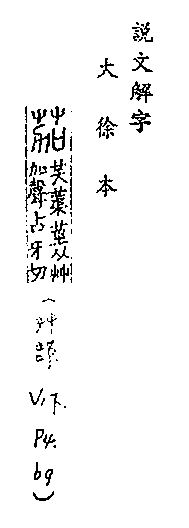 説文解字
大徐本
茄
芙蕖莖从艸
加聲古牙切
(艸部 V.1下. P4. b9)